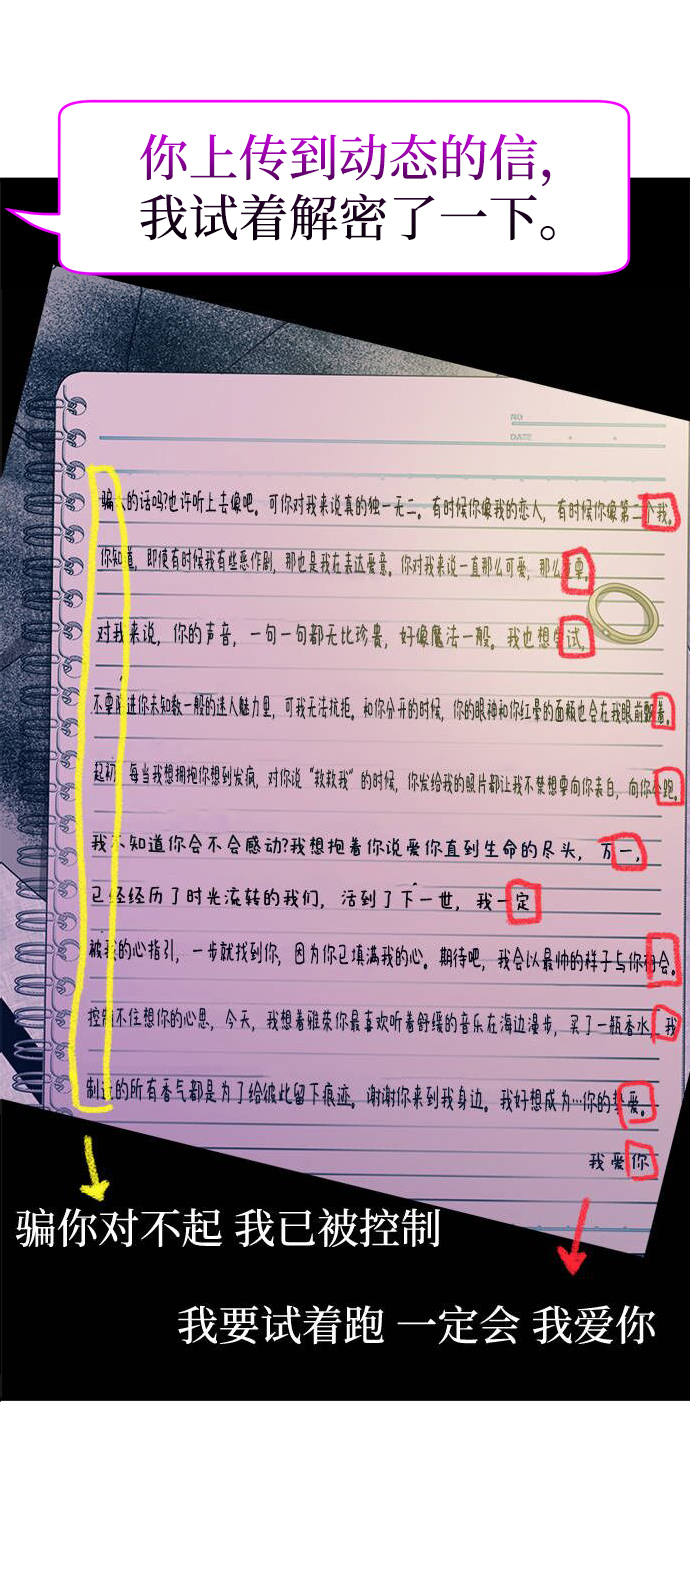 你上传到动态的信,
我试着解密了一下。
NO
DATE
骗人的话吗?也许听上去像吧。可你对我来说真的独一无二。有时候你像我的恋人，有时候你像第二个我。
你知道，即便有时候我有些恶作剧，那也是我在表达爱意。你对我来说一直那么可爱，那么重要。
对我来说，你的声音，一句一句都无比珍贵，好像魔法一般。我也想尝试，
不要陷进你未知数一般的迷人魅力里，可我无法抗拒。和你分开的时候，你的眼神和你红晕的面颊也会在我眼前飘着。
起初，每当我想拥抱你想到发疯，对你说“救救我”的时候，你发给我的照片都让我不禁想要向你表白，向你奔跑。
我不知道你会不会感动?我想抱着你说爱你直到生命的尽头，万一，
已经经历了时光流转的我们，活到了下一世，我一定
被我的心指引，一步就找到你，因为你已填满我的心。期待吧，我会以最帅的样子与你相会。
控制不住想你的心思，今天，我想着雅荣你最喜欢听着舒缓的音乐在海边漫步，买了一瓶香水，我
制造的所有香气都是为了给彼此留下痕迹。谢谢你来到我身边。我好想成为…你的挚爱。
我爱你
骗你对不起 我已被控制
我要试着跑 一定会 我爱你